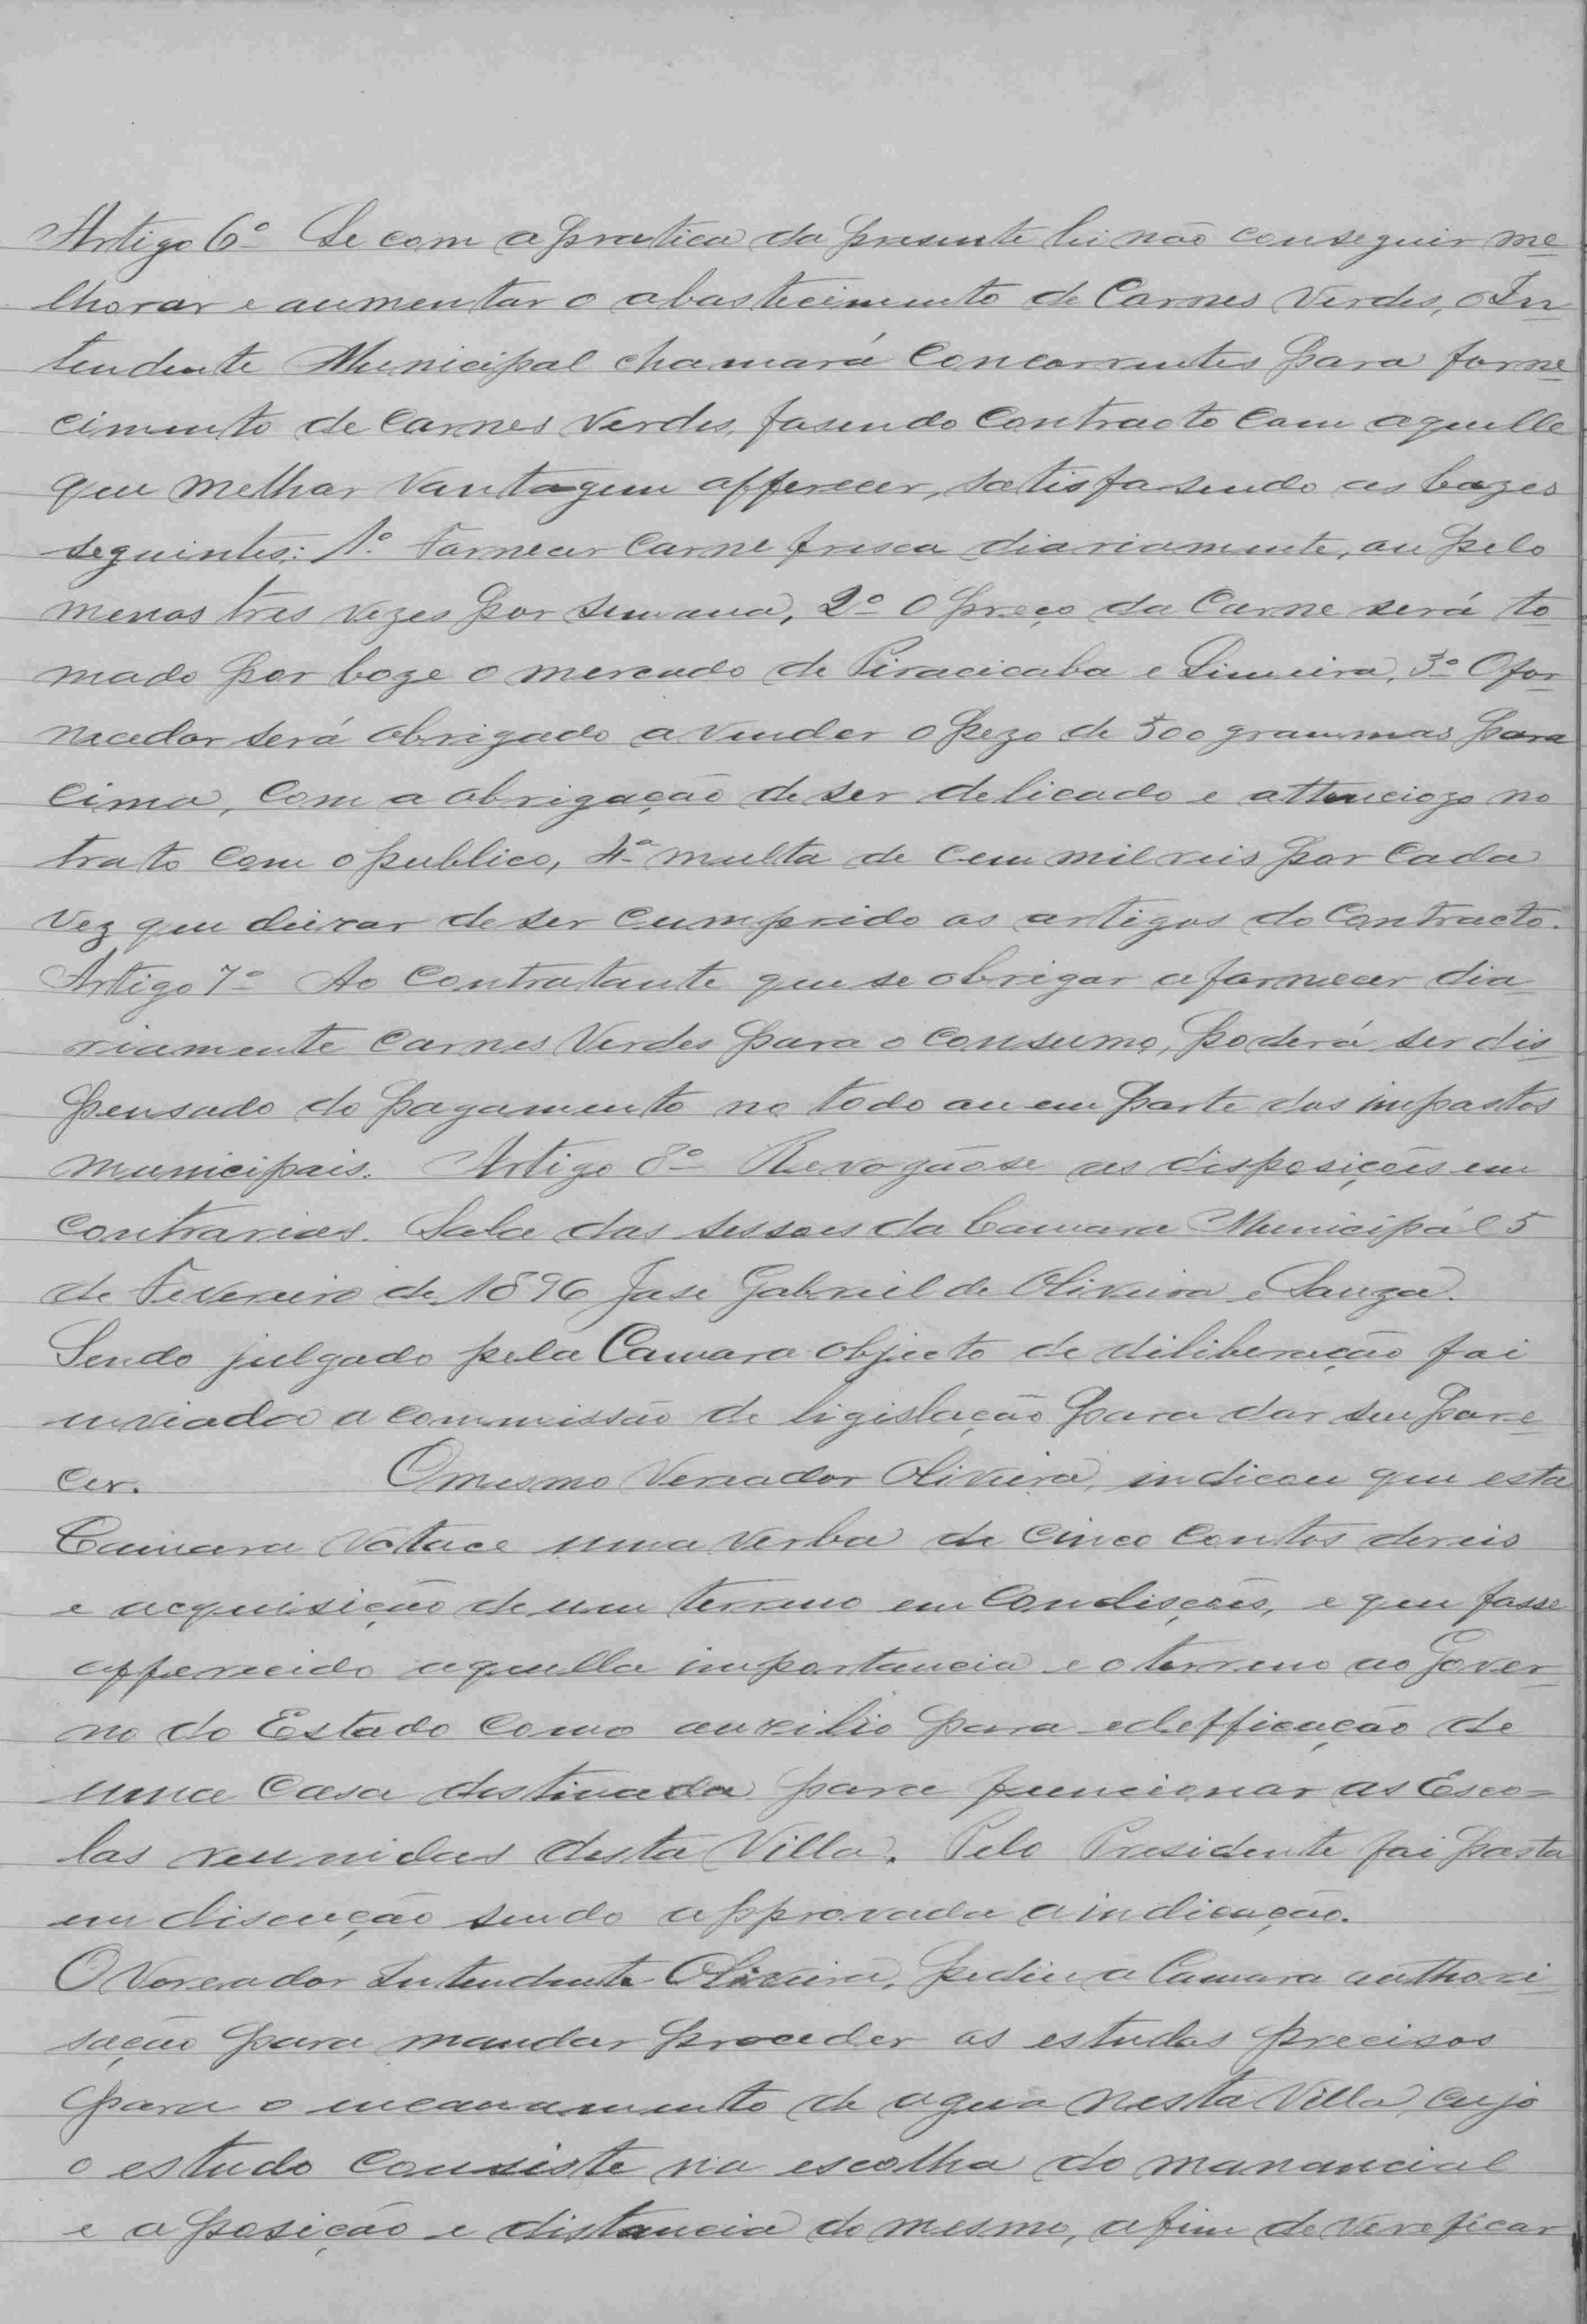 Artigo 6º Se com a pratica da presente lei não conseguir me
lhorar e aumentar o abastecimento de Carnes Verdes, o In
tendente Municipal chamará Concorrentes para forne
cimento de Carnes Verdes, fasendo Contracto Com aquelle
que melhor Vantagem offerecer, satisfasendo as bazes
seguintes: 1º Fornecer Carne fresca diariamente, ou pelo
menos tres vezes por semana, 2º O preço da Carne será to
mado por baze o mercado de Piracicaba e Limeira, 3º O for
necedor será obrigado a vender o pezo de 500 grammas para
cima, Com a obrigação de ser delicado e attenciozo no
trato Com o publico, 4ª multa de Cem mil reis por Cada
Vez que deixar de ser Cumprido os artigos do Contracto.
Artigo 7º Ao Contratante que se obrigar a fornecer dia
riamente Carnes Verdes para o Consumo, poderá ser dis
pensado do pagamento no todo ou em parte dos impostos
municipais. Artigo 8º Revogãose as disposições em
Contrarias. Sala das sessoes da Camara Municipál 5
de Fevereiro de 1896 Jose Gabriel de Oliveira e Souza.
Sendo julgado pela Camara objecto de diliberação foi
enviada a commissão de ligislação para dar seu pare
Cer. O mesmo Vereador Oliveira, indicou que esta
Camara Votace uma Verba de Cinco Contos de reis
e acquisição de um terreno em Condisções, e que fosse
offerecido aquella importancia e o terreno ao Gover
no do Estado Como auxilio para edefficação de
uma Casa destinada para funcionar as Esco-
las reunidas desta Villa. Pelo Presidente foi posta
em discução sendo approvada a indicação.
O Vereador Intendente Oliveira, pediu a Camara authori
sação para mandar proceder os estudos precisos
para o encanamento de agua nesta Villa, cujo
o estudo Consiste na escolha do manancial
e a posição e distancia do mesmo, afim de Vereficar